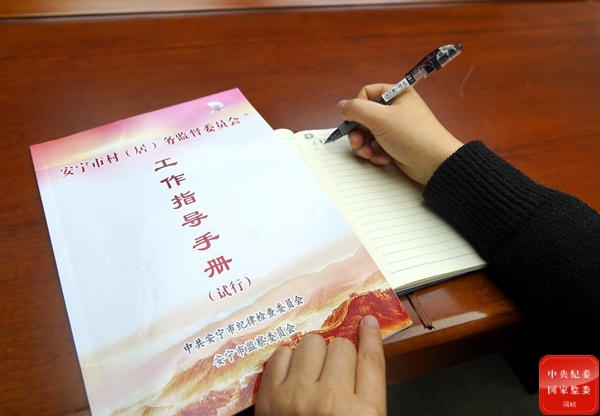 安宁市村（居）务监督委员会
工作指导手册
（试行）
中共安宁市纪律检查委员会
安宁市监察委员会
中央纪委
国家监委